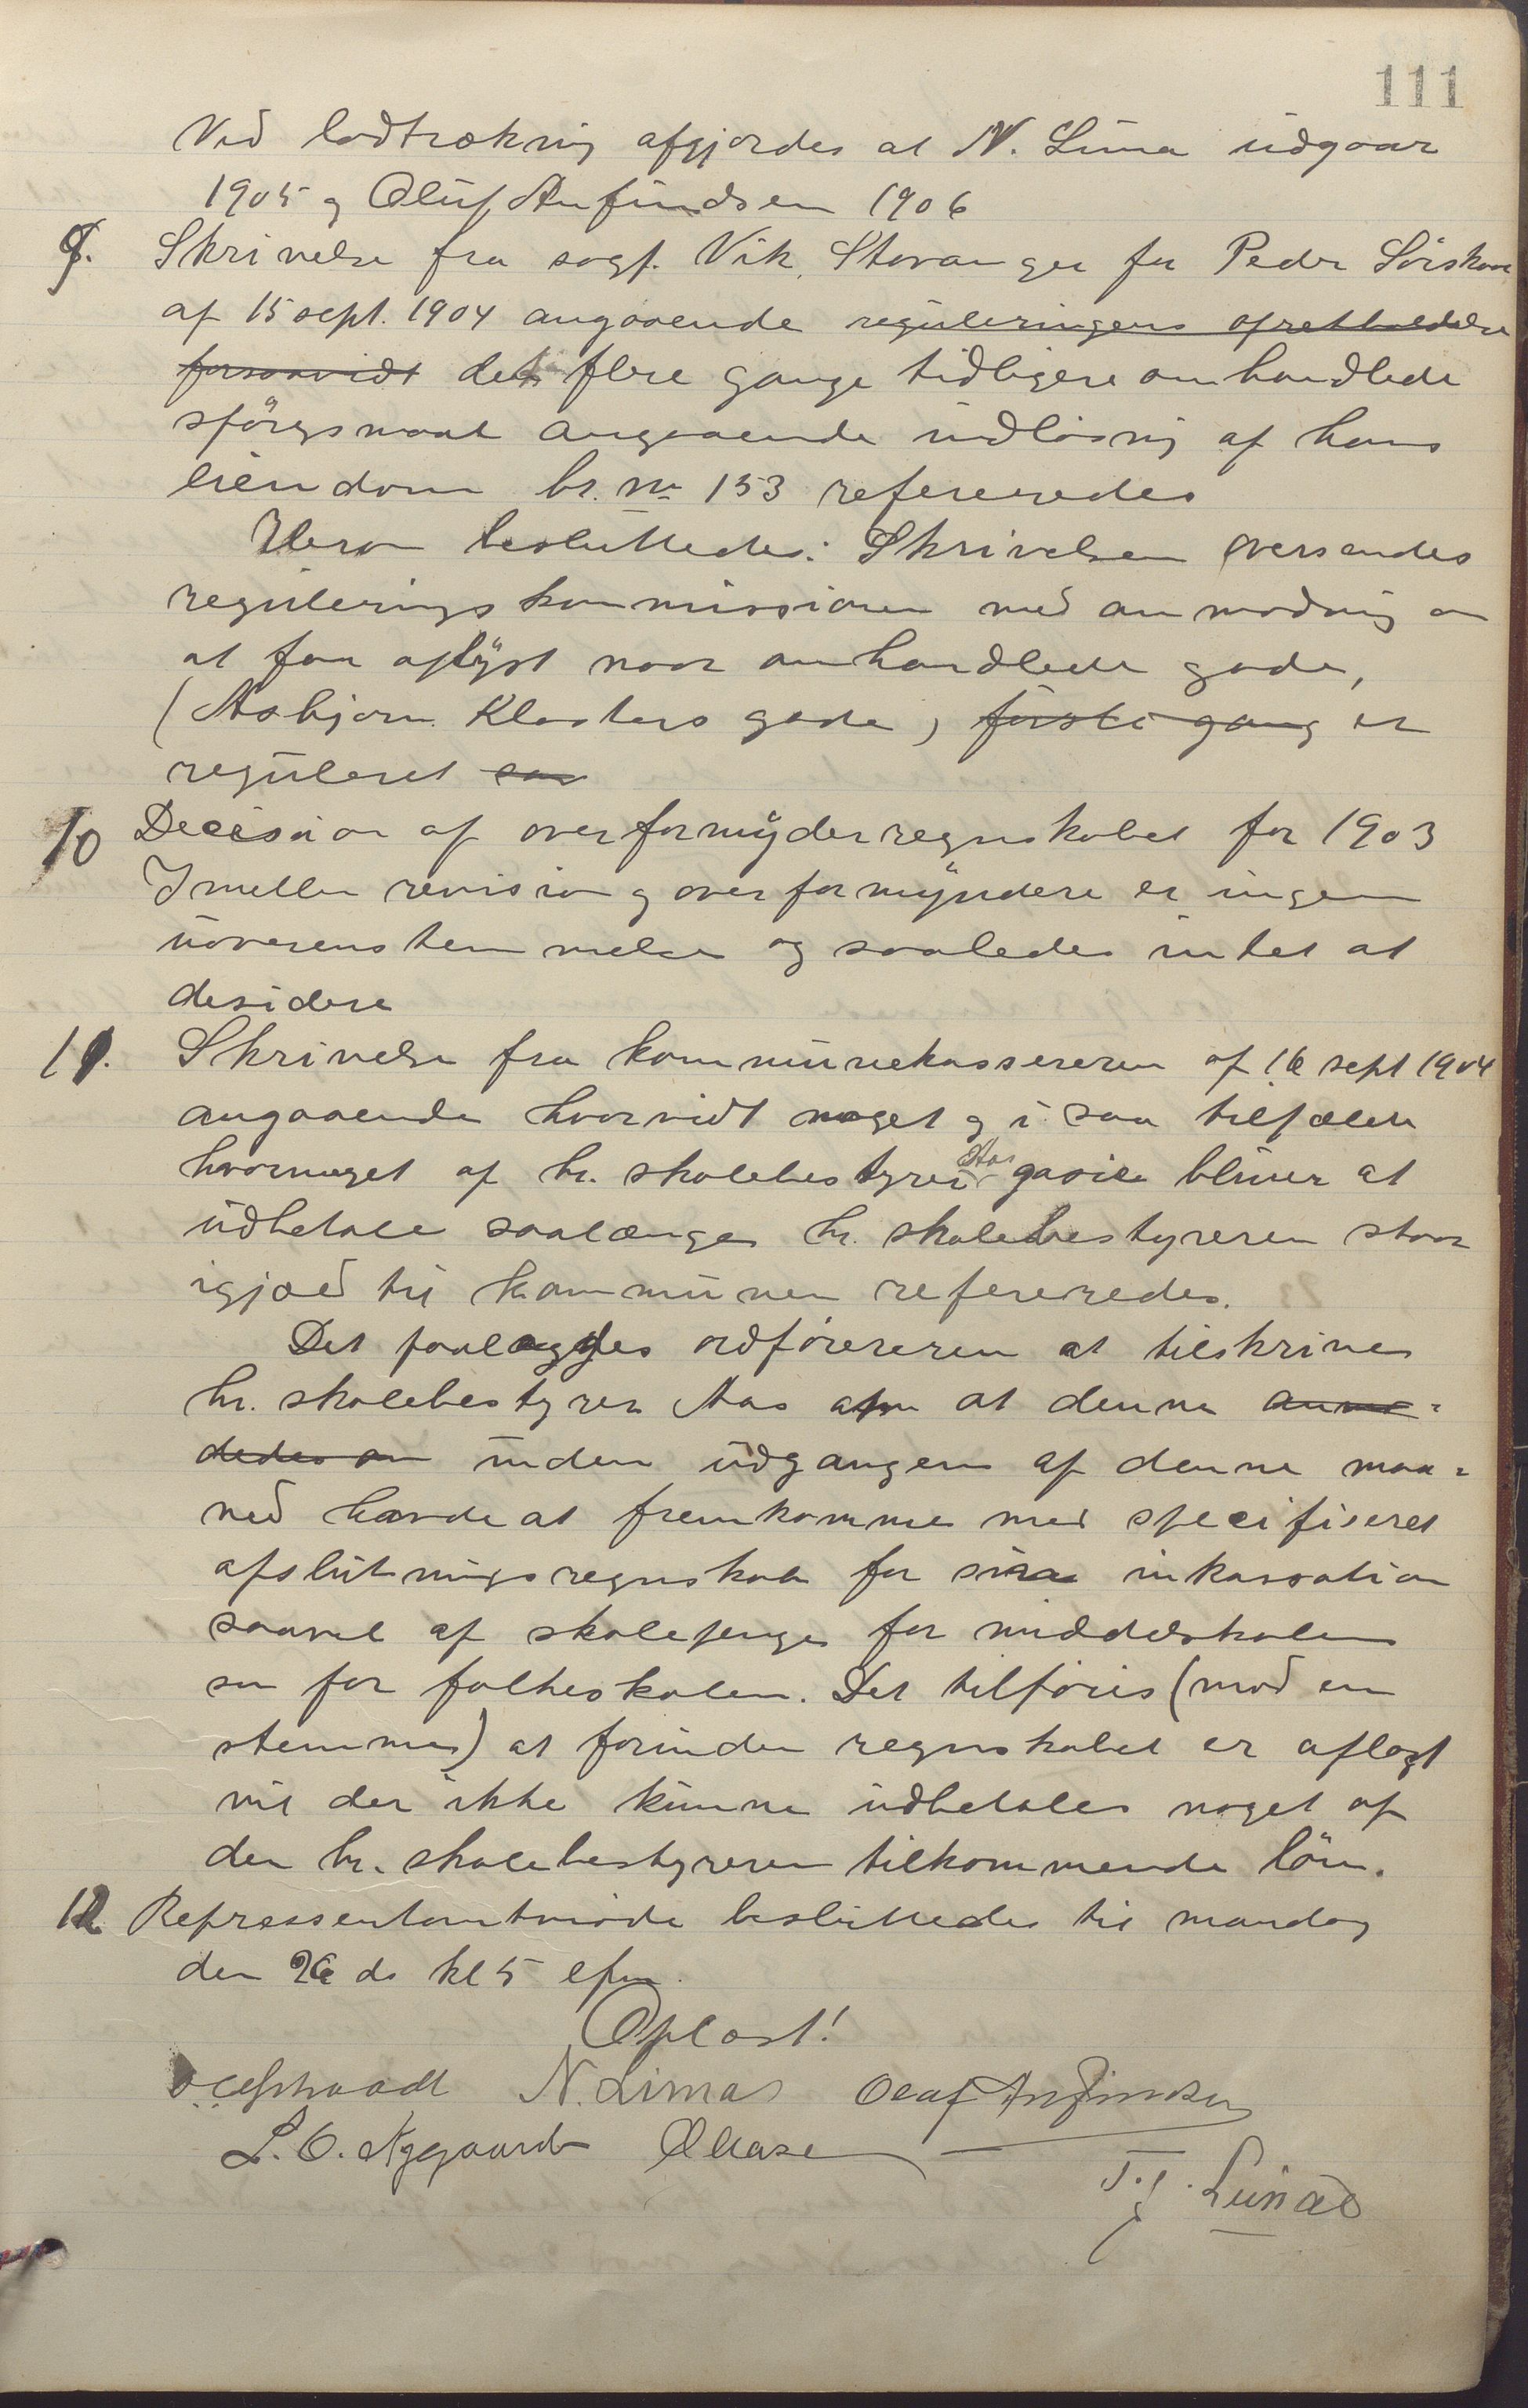 111
Ved lodtrækning afgjordes at N. Lima udgaar
1905 og Oluf Anfindsen 1906
9. Skrivelse fra sagf. Vik, Stavanger for Peder Sörskaar
af 15 sept. 1904 angaaende reguleringens opretholdelse
forsaavidt det flere gange tidligere omhandlede
spörgsmaal angaaende indlösning af hans
eiendom br. no 153 refereredes
Herom besluttedes: Skrivelsen oversendes
reguleringskommissionen med anmodning om
at faa oplyst naar omhandlede gade,
(Asbjørn Klosters gade) förste gang er
reguleret saa
10 Decision af overformynderregnskabet for 1903
Imellem revision og overformyndere er ingen
uoverenstemmelse og saaledes intet at
desidere
11. Skrivelse fra kommunekassereren af 16 sept 1904
angaaende hvorvidt noget og i saa tilfælde
hvormeget af hr. skolebestyrer Aas gasie bliver at
udbetale saalænge hr. skolebestyreren staar
igjæld til kommunen refereredes.
Det paalægges ordföreren at tilskrive
hr. skolebestyrer Aas om at denne anmo-
dedes om inden udgangen af denne maa-
ned havde at fremkomme med specifiseret
afslutningsregnskab for sine inkassation
saavel af skolepenge for middelskolen
som for folkeskolen. Det tilföies (mod en
stemme) at forinden regnskabet er aflagt
vil der ikke kunne udbetales noget af
den hr. skolebestyreren tilkommende lön.
12 Repressentantmöde besluttedes til mandag
den 26 ds kl 5 efm.
Oplæst!
N. Lima Olaf Anfindsen
L. O. Nygaard O Aase
T. J. Lunde